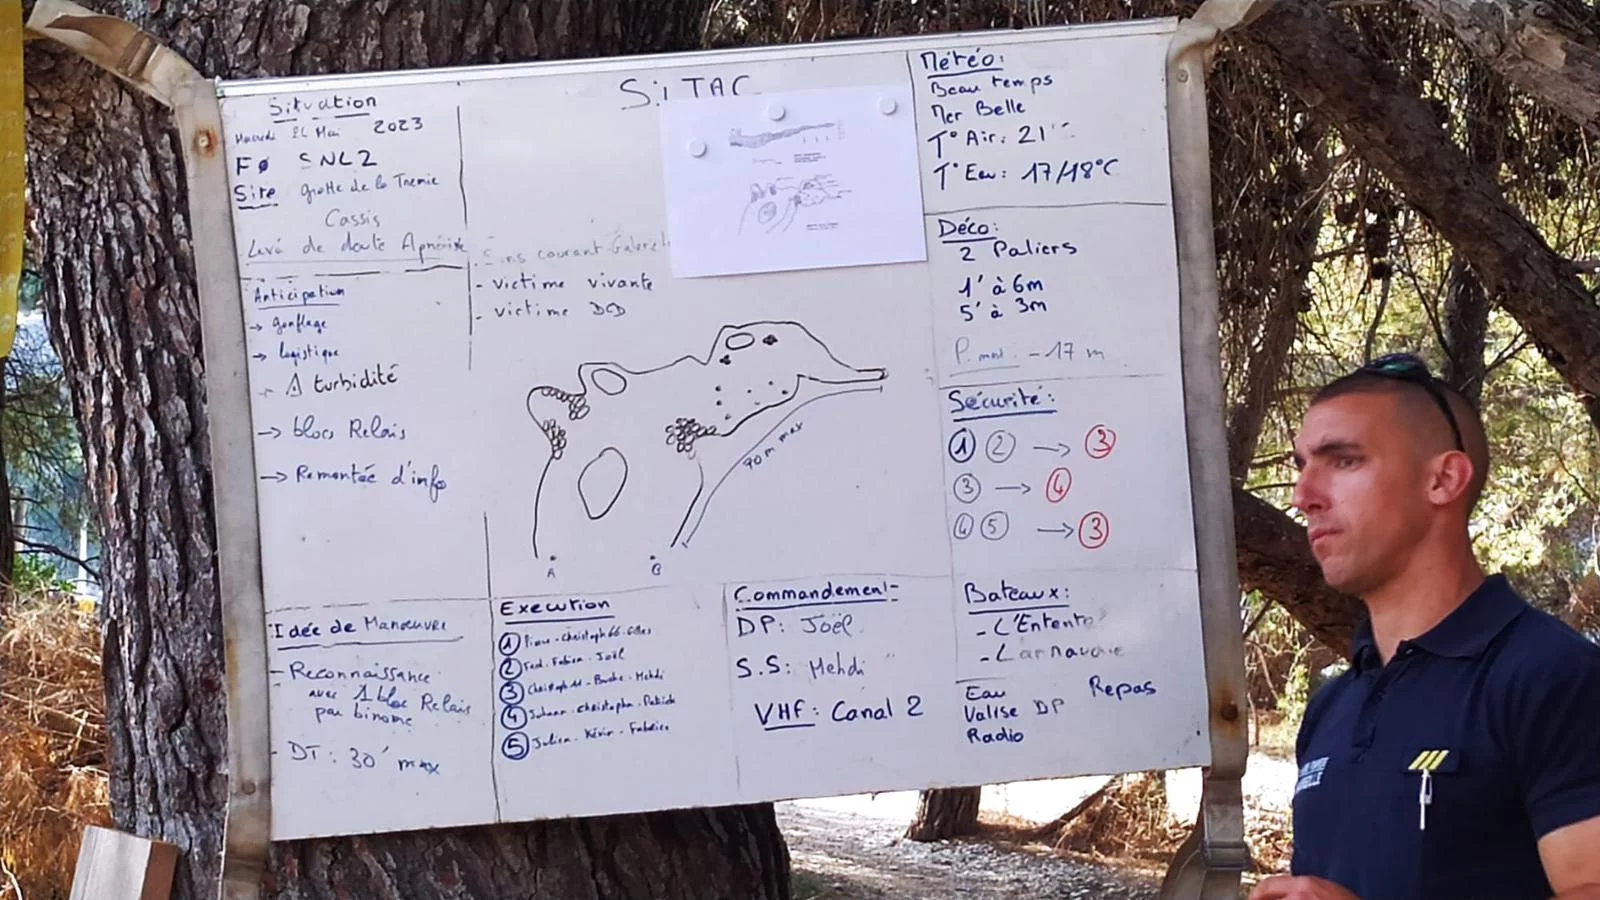 Situation
Mercredi 24 Mai 2023
FØ SNL2
Site grotte de la Tremie
Cassis
Levé de doute Apnéiste
Anticipation
→ gonflage
→ logistique
→ 1 turbidité
→ blocs Relais
→ Remontée d'info
Idée de Manœuvre
- Reconnaissance
avec 1 bloc Relais
par binome
- DT : 30' max
Si TAC
courant Galerie
- victime vivante
- victime DCD
90 m max
A
B
Execution
1 Pierre - Christoph 66 - Gilles
2 Fred - Fabien - Joël
3 Christoph 11 - Bruche - Mehdi
4 Johann - Christophe - Patrick
5 Julien - Kévin - Fabrice
Commandement
DP : Joël
S.S : Mehdi
VHF : Canal 2
Météo :
Beau temps
Mer Belle
T° Air : 21°
T° Eau : 17/18°C
Déco :
2 Paliers
1' à 6m
5' à 3m
- 17 m
Sécurité :
1 2 → 3
3 → 4
4 5 → 3
Bateaux :
- L'Entente
-
Eau Repas
Valise DP
Radio